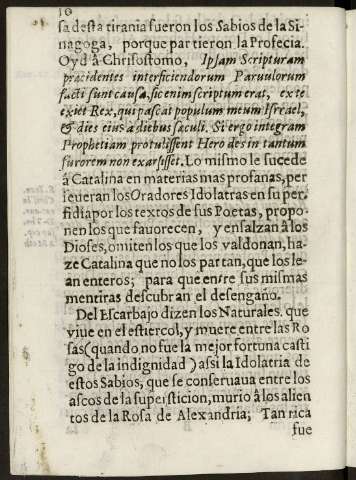 10
sa desta tirania fueron los Sabios de la Si-
nagoga, porque partieron la Profecia.
Oyd â Chrisostomo, Ipsam Scripturam
præcidentes interficiendorum Paruulorum
facti sunt causa, sic enim scriptum erat, ex te
exiet Rex, qui pascat populum meum Isrrael,
& dies eius a diebus sæculi. Si ergo integram
Prophetiam protulissent Herodes in tantum
furorem non exarsisset. Lo mismo le sucede
â Catalina en materias mas profanas, per
seueran los Oradores Idolatras en su per-
fidia por los textos de sus Poetas, propo-
nen los que fauorecen, y ensalzan â los
Dioses, omiten los que los valdonan, ha-
ze Catalina que no los partan, que los le-
an enteros; para que entre sus mismas
mentiras descubran el desengaño.
Del Escarbajo dizen los Naturales, que
viue en el estiercol, y muere entre las Ro
sas (quando no fue la mejor fortuna casti
go de la indignidad) assi la Idolatria de
estos Sabios, que se conseruaua entre los
ascos de la supersticion, murio â los alien
tos de la Rosa de Alexandria; Tan rica
fue